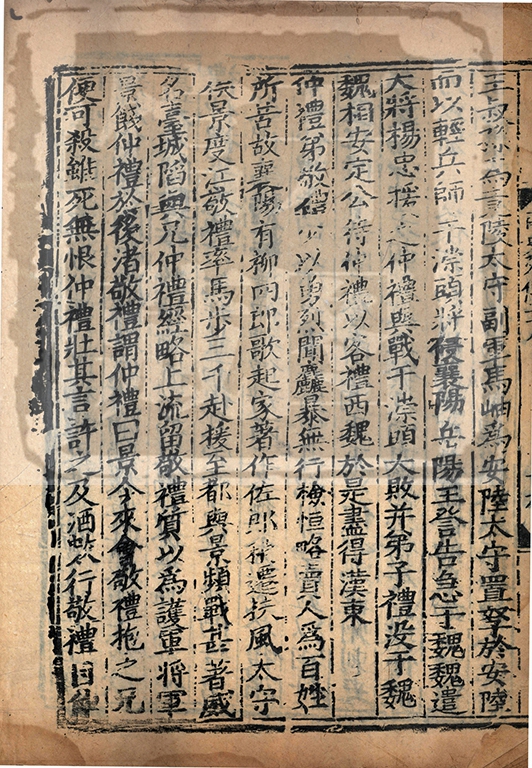 王叔孫為竟陵太守副軍馬岫為安陸太守置孥於安陸
而以輕兵師于漴頭將侵襄陽岳陽王詧告急于魏魏遣
大將楊忠援之仲禮與戰于漴頭大敗并弟子禮没于魏
魏相安定公待仲禮以客禮西魏於是盡得漢東
仲禮弟敬禮少以勇烈聞麤暴無行檢恒略賣人爲百姓
所苦故襄陽有柳四郎歌起家著作佐郎稍遷扶風太守
侯景度江敬禮率馬步三千赴援至都與景頻戰甚著威
名臺城陷與兄仲禮經略上流留敬禮質以為護軍將軍
景餞仲禮於後渚敬禮謂仲禮曰景今來會敬禮抱之兄
便可殺雖死無恨仲禮壯其言許之及酒數行敬禮目仲